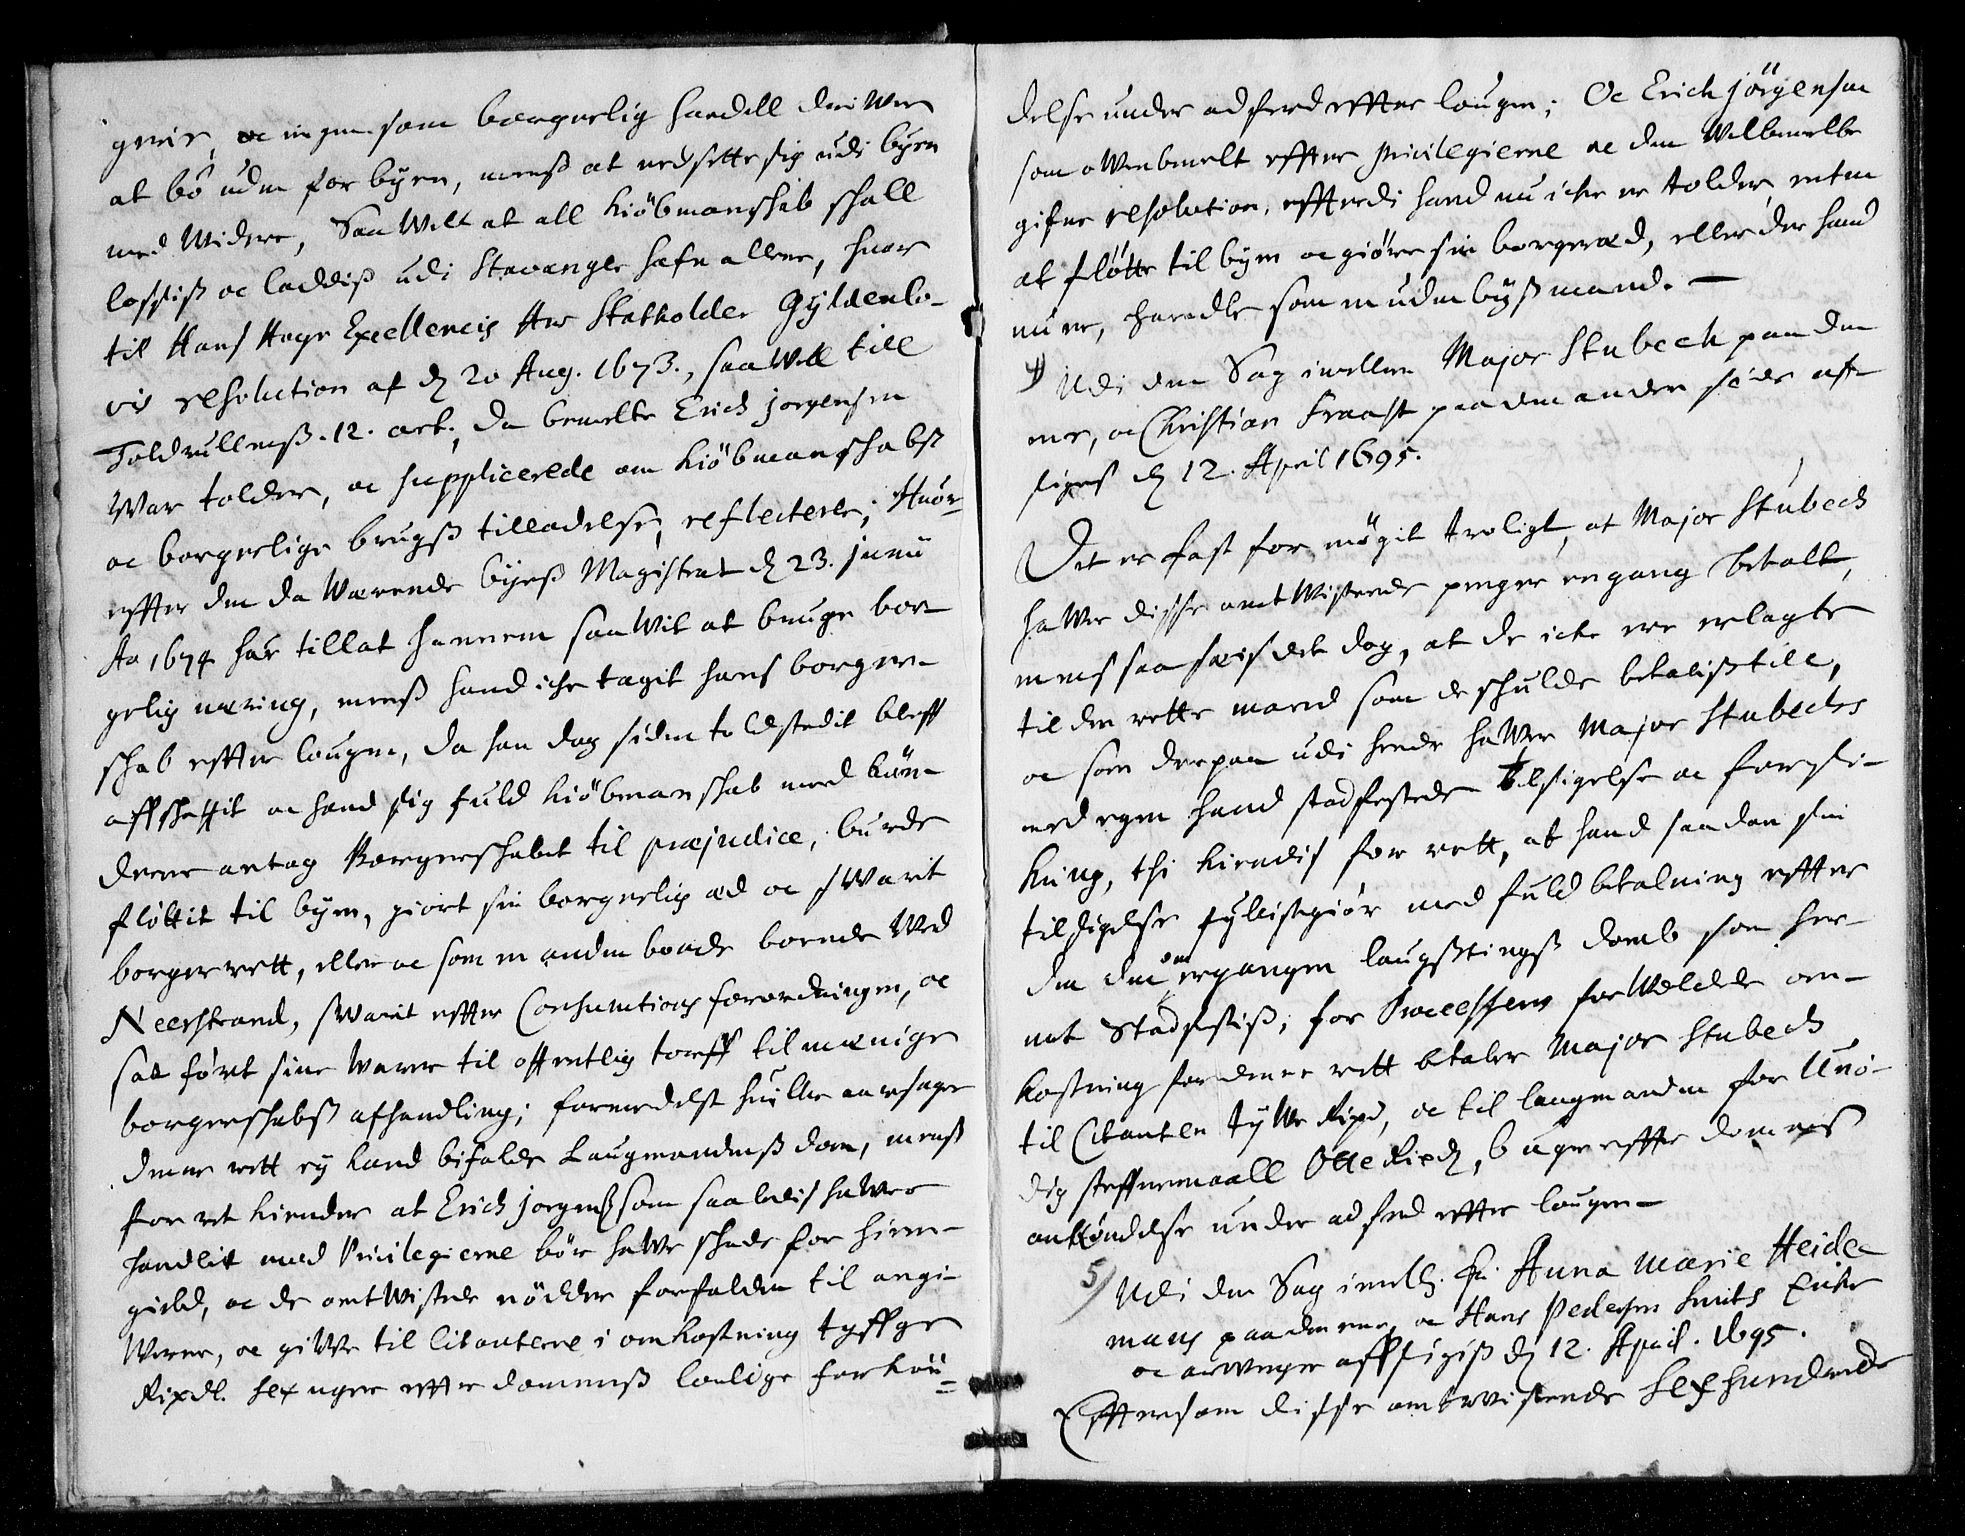 gerer, oc ingen som borgerlig handell driWer
at bo uden for byen, mens at nedsette sig udi byen
med Widere, SaaWelt at all kiöbmanschab schall
lossis oc laddis udi Stavanger hafn allene, huor
til Hans Høye Excellencis Her Statholder Gyldenlø-
vis resolution af d. 20 Aug. 1673., saaWell till
Toldrullens 12. art., da bemelte Erich jorgensen
War tolder, oc supplicerede om kiöbmanschabs
oc borgerlige brugs tilladelse, reflecterer; Huor-
effter den da Werende byes Magistrat d. 23. junii
Ao 1674 har tillat hannem saaWit at bruge bor-
gerlig næring, mens hand iche tagit hans borger-
schab effter lougen, da han dog siden toldstedit bleff
affschaffit oc hand sig fuld kiöbmanschab med bøn-
derne antog Borgerschabet til præjudice, burde
flöttit til byen, giort sin borgerlig æd oc sWarit
borgerrett, eller oc som en anden bonde boende Wed
Neerstrand, sWarit effter Consumtions forordningen, oc
saa fört sine Warer til offentlig torff til menige
borgerschabs afhandling; formedelst huilke aarsager
denne rett ey kand bifalde Laugmandens dom, mens
for ret kiender at Erich jorgens. som saaledis haWer
handlit mod Privilegierne bör haWe schade for hiem-
gield, oc de omtWistede nödder forfalden til angi-
Werne, oc giWe til Citanterne i omkostning tyffge
Rixdl. sex uger effter dommens lovlige forkön-
delse under adferd effter lougen; Oc Erich jörgensen
som oWenbemelt effter privilegierne oc den Welbemelte
gifne resolution, effterdi hand nu iche er tolder, enten
at flötte til byen oc giöre sin borgeræd, eller der hand
nu er, handle som en udenbysmand. —
4) Udi den Sag imellem Major Stubech paa den
ene, oc Christian Fraast paa den anden side af-
siges d. 12. April 1695.
Det er fast for mögit troligt, at Major Stubech
haWer disse omtWistende penger engang betalt,
mens saa feis det dog, at de iche ere erlagte
til den rette mand som de schulde betalis till,
oc som derpaa udi hende haWer Major Stubechs
med egen hand stadfestede tilsigelse oc forsi-
kring, thi kiendis for rett, at hand saadan sin
tilsigelse fyllistgiör med fuld betalning effter
den der om ergangen laugtings domb som her-
met Stadfestis; for Processens forWoldede om-
kostning for denne rett betaler Major Stubech
til Citanten tyWe Rixd, oc til laugmanden for Unö-
dig steffnemaall Otte Rixd, 6 uger effter dommens
anköndelse under adferd effter lougen —
5) Udi den Sag imell. Fr. Anna Marie Heide-
mans paa den ene, oc Hans Pedersen Smits Enke
oc arwinger affsigis d. 12. April. 1695.
Effttersom disse omtwistende Sex hundrede